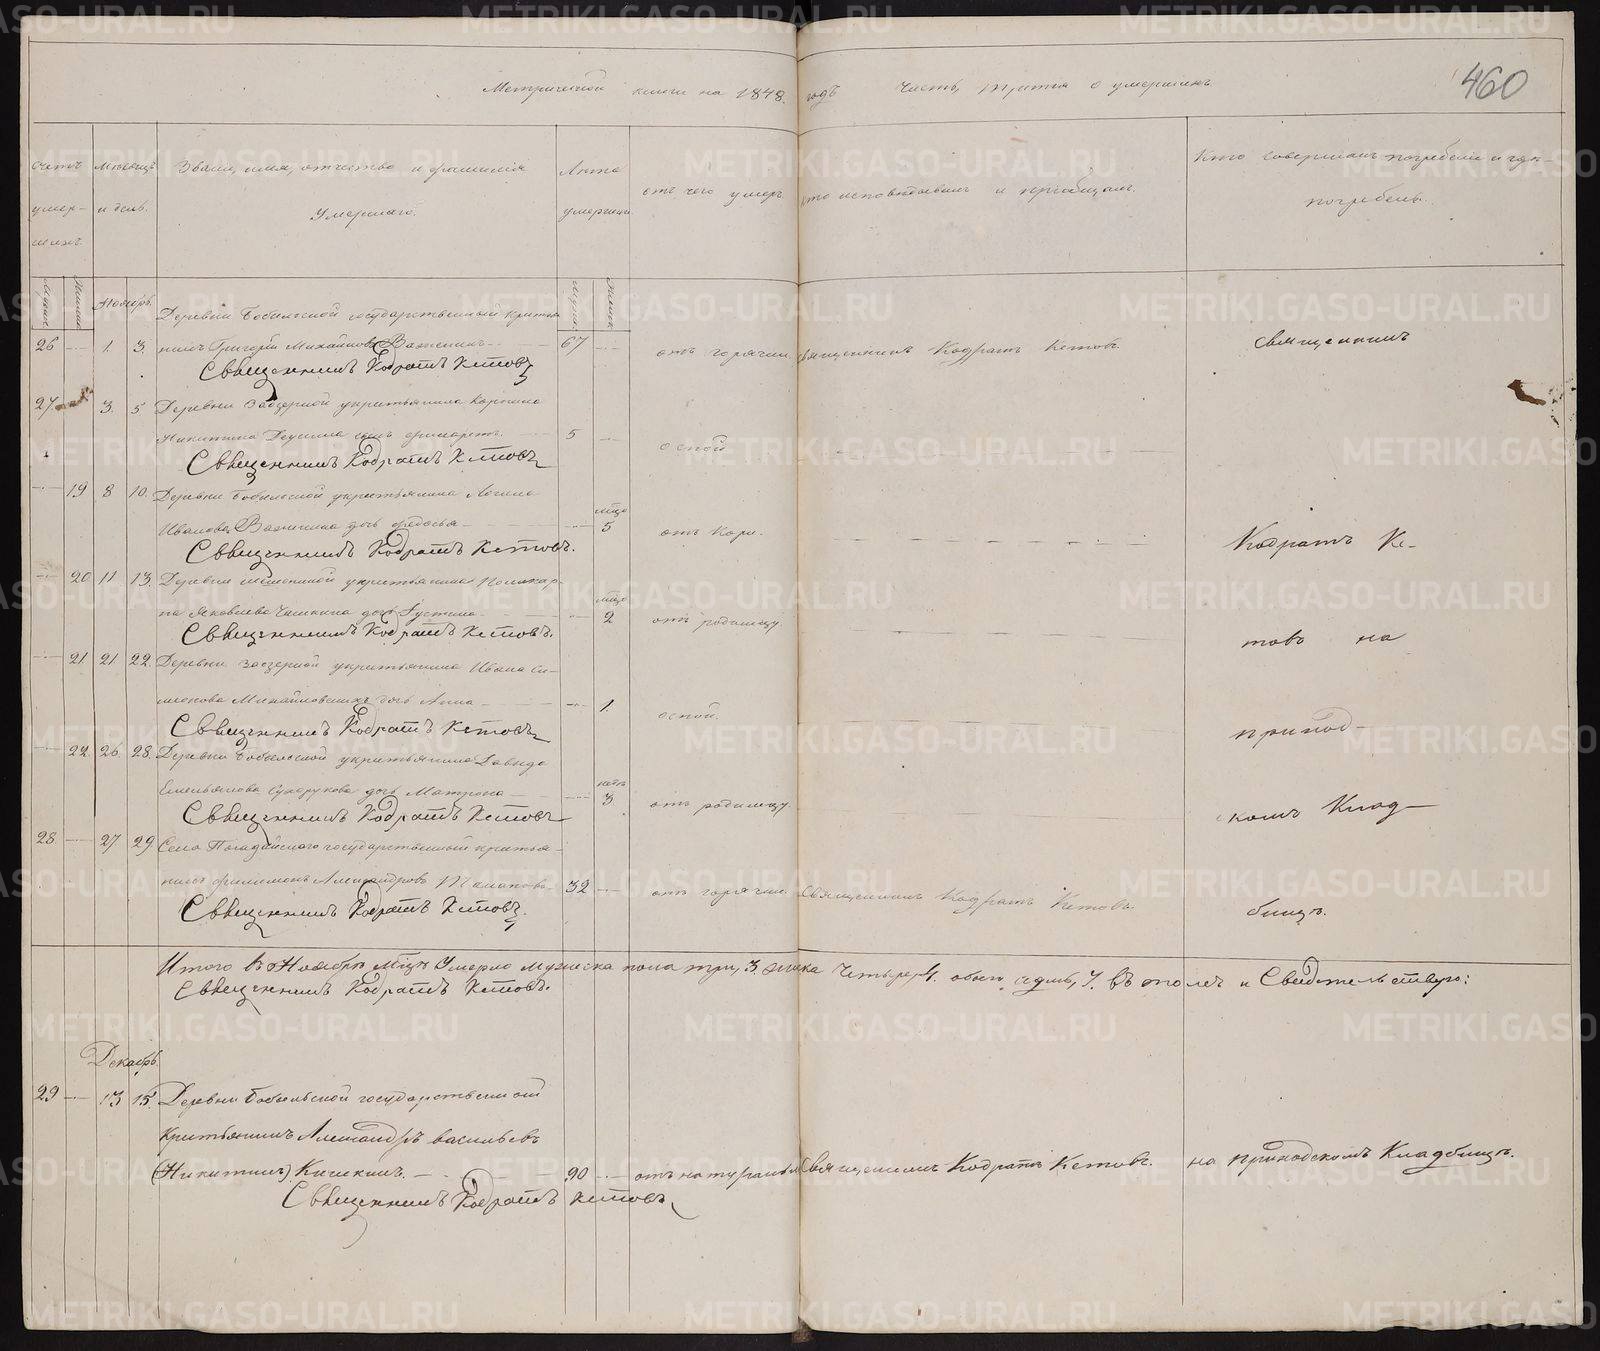 460
Метрической книги на 1848. годъ Часть, третья о умершихъ
Счетъ умер-шихъ
Мѣсяцъ и день.
Званіе, имя, отчество и фамилія
умершаго.
Лѣта умершаго
отъ чего умеръ
кто исповѣдывалъ и пріобщалъ.
Кто совершалъ погребеніе и гдѣ
погребены.
Ноябрь
26 — 1. 3. Деревни Бобыльской государственный крестья
нинъ Григорій Михайловъ Важенинъ — 67 — отъ горячки Священникъ Кодратъ Кетовъ.
Священникъ Кодратъ Кетовъ
27. — 3. 5 Деревни Заозерной у крестьянина Карпила
Никитина сынъ 5 — оспой
Священникъ Кодратъ Кетовъ
— 19 8 10. Деревни Бобыльской у крестьянина Логина
Иванова Важенина дочь Федосья — мѣсс 5 отъ кори.
Священникъ Кодратъ Кетовъ.
— 20 11 13. Деревни у крестьянина Поликар-
па Яковлева дочь Густина — 2 отъ родимцу.
Священникъ Кодратъ Кетовъ.
— 21 21 22. Деревни Заозерной у крестьянина Ивана Си-
монова дочь Анна — 1. оспой.
Священникъ Кодратъ Кетовъ
— 22. 26. 28. Деревни Бобыльской у крестьянина Давида
Емельянова Сухарукова дочь Матрона — 3 отъ родимцу.
Священникъ Кодратъ Кетовъ
28. — 27 29. Села государственный крестья-
нинъ Филимонъ Александровъ — 32 — отъ горячки Священникъ Кодратъ Кетовъ
Священникъ Кодратъ Кетовъ.
Священникъ
Кодратъ Ке-
товъ на
приход-
скомъ Клад-
бищѣ.
Итого въ Ноябрѣ мѣсцѣ Умерло мужеска пола три, 3. женска Четыре, 4. обоего седмь, 7. въ томъ и Свидѣтельствую:
Священникъ Кодратъ Кетовъ.
Декабрь.
29 — 13 15. Деревни Бобыльской государственной
Крестьянинъ Александръ Васильевъ
(Никитинъ) Кичкинъ. — 90 — отъ натуральн Священникъ Кодратъ Кетовъ. на приходскомъ Кладбищѣ.
Священникъ Кодратъ Кетовъ
METRIKI.GASO-URAL.RU